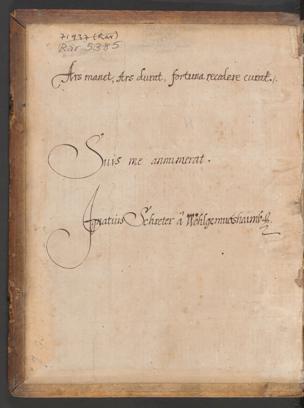 71937 (Rar)
Rar 5385
Ars manet, Ars durat, fortuna recedere curat.
Suis me annumerat.
Ignatius Schreter à Wohlgemuetshaimb